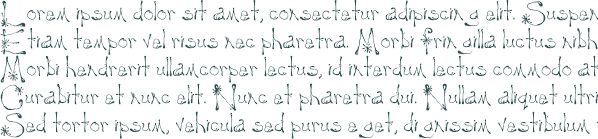 Lorem ipsum dolor sit amet, consectetur adipiscing elit. Suspen
Etiam tempor vel risus nec pharetra. Morbi fringilla luctus nibh
Morbi hendrerit ullamcorper lectus, id interdum lectus commodo at
Curabitur et nunc elit. Nunc et pharetra dui. Nullam aliquet ultri
Sed tortor ipsum, vehicula sed purus eget, dignissim vestibulum